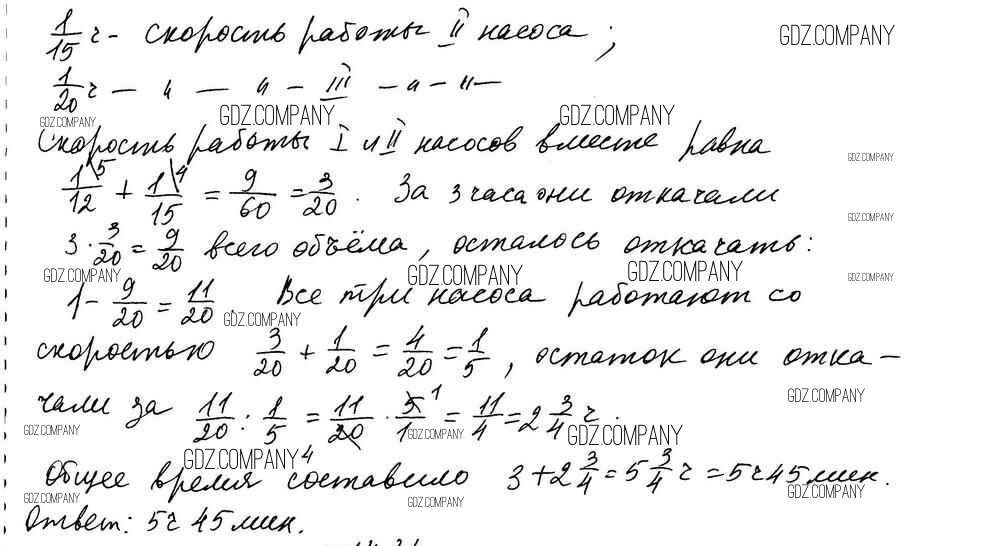 1/15 ч - скорость работы II насоса;
GDZ.COMPANY
1/20 ч — " — " — III — " — " —
GDZ.COMPANY GDZ.COMPANY GDZ.COMPANY
Скорость работы I и II насосов вместе равна
GDZ.COMPANY
1\5/12 + 1\4/15 = 9/60 = 3/20. За 3 часа они откачали
GDZ.COMPANY
3 · 3/20 = 9/20 всего объёма, осталось откачать:
GDZ.COMPANY GDZ.COMPANY GDZ.COMPANY GDZ.COMPANY
1 - 9/20 = 11/20. Все три насоса работают со
GDZ.COMPANY
скоростью 3/20 + 1/20 = 4/20 = 1/5, остаток они отка-
GDZ.COMPANY
чали за 11/20 : 1/5 = 11/20 · 5/1 = 11/4 = 2 3/4 ч.
GDZ.COMPANY GDZ.COMPANY GDZ.COMPANY
GDZ.COMPANY
Общее время составило 3 + 2 3/4 = 5 3/4 ч = 5 ч 45 мин.
GDZ.COMPANY GDZ.COMPANY GDZ.COMPANY
Ответ: 5 ч 45 мин.